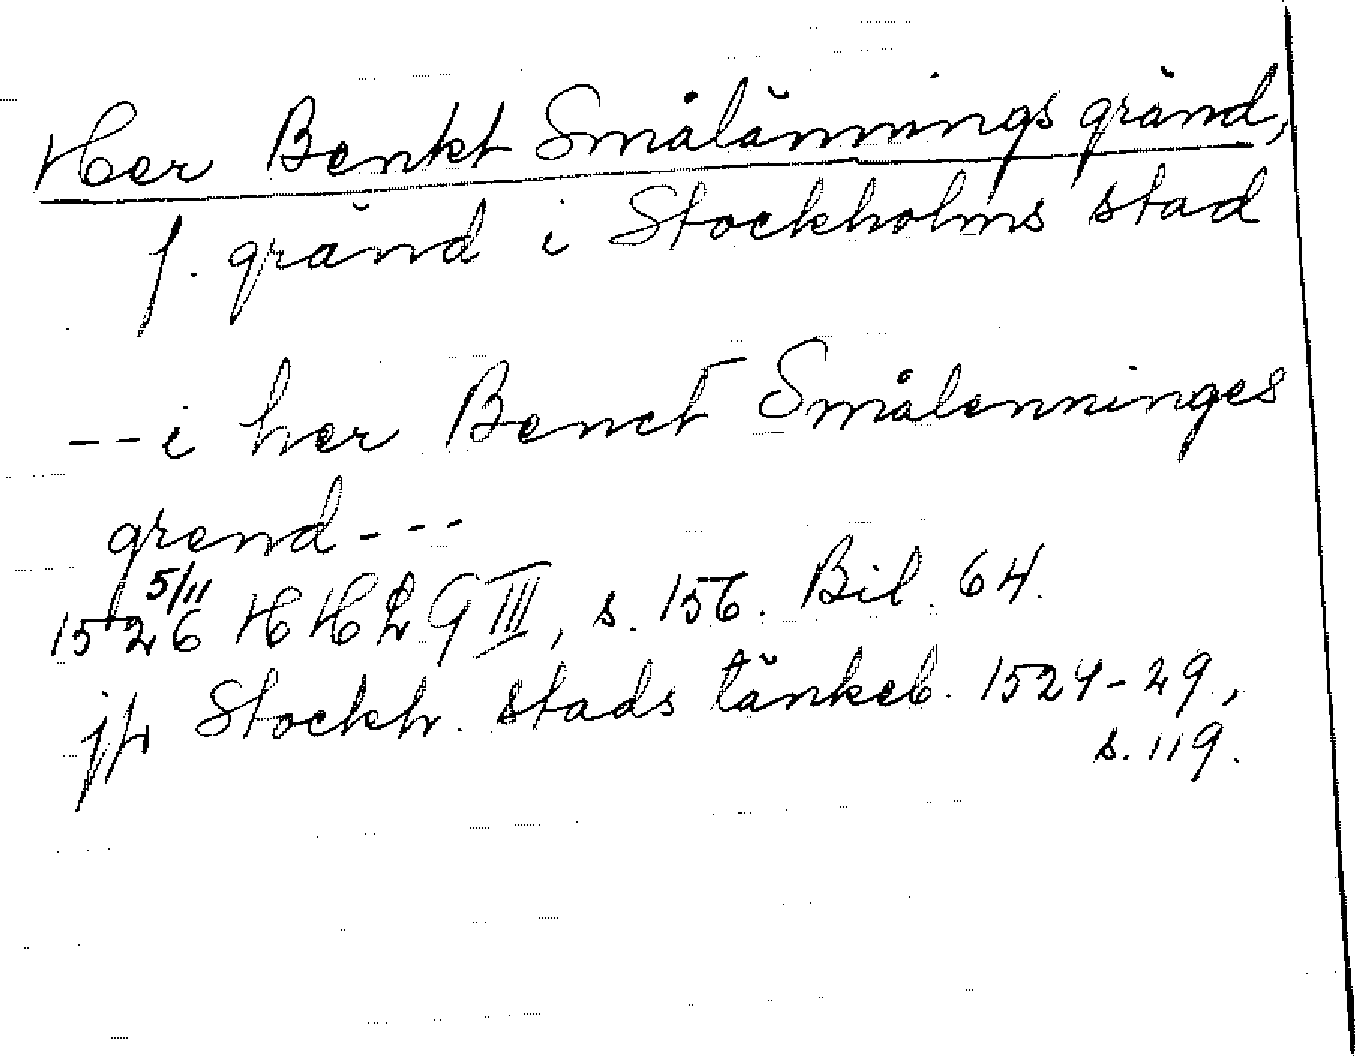 Her Benkt Smålännings gränd,
f. gränd i Stockholms stad
--i her Benct Smålenninges
grend---
5/11
1526 HHLG III, s. 156. Bil. 64.
jfr Stockh. stads tänkeb. 1524-29,
s. 119.